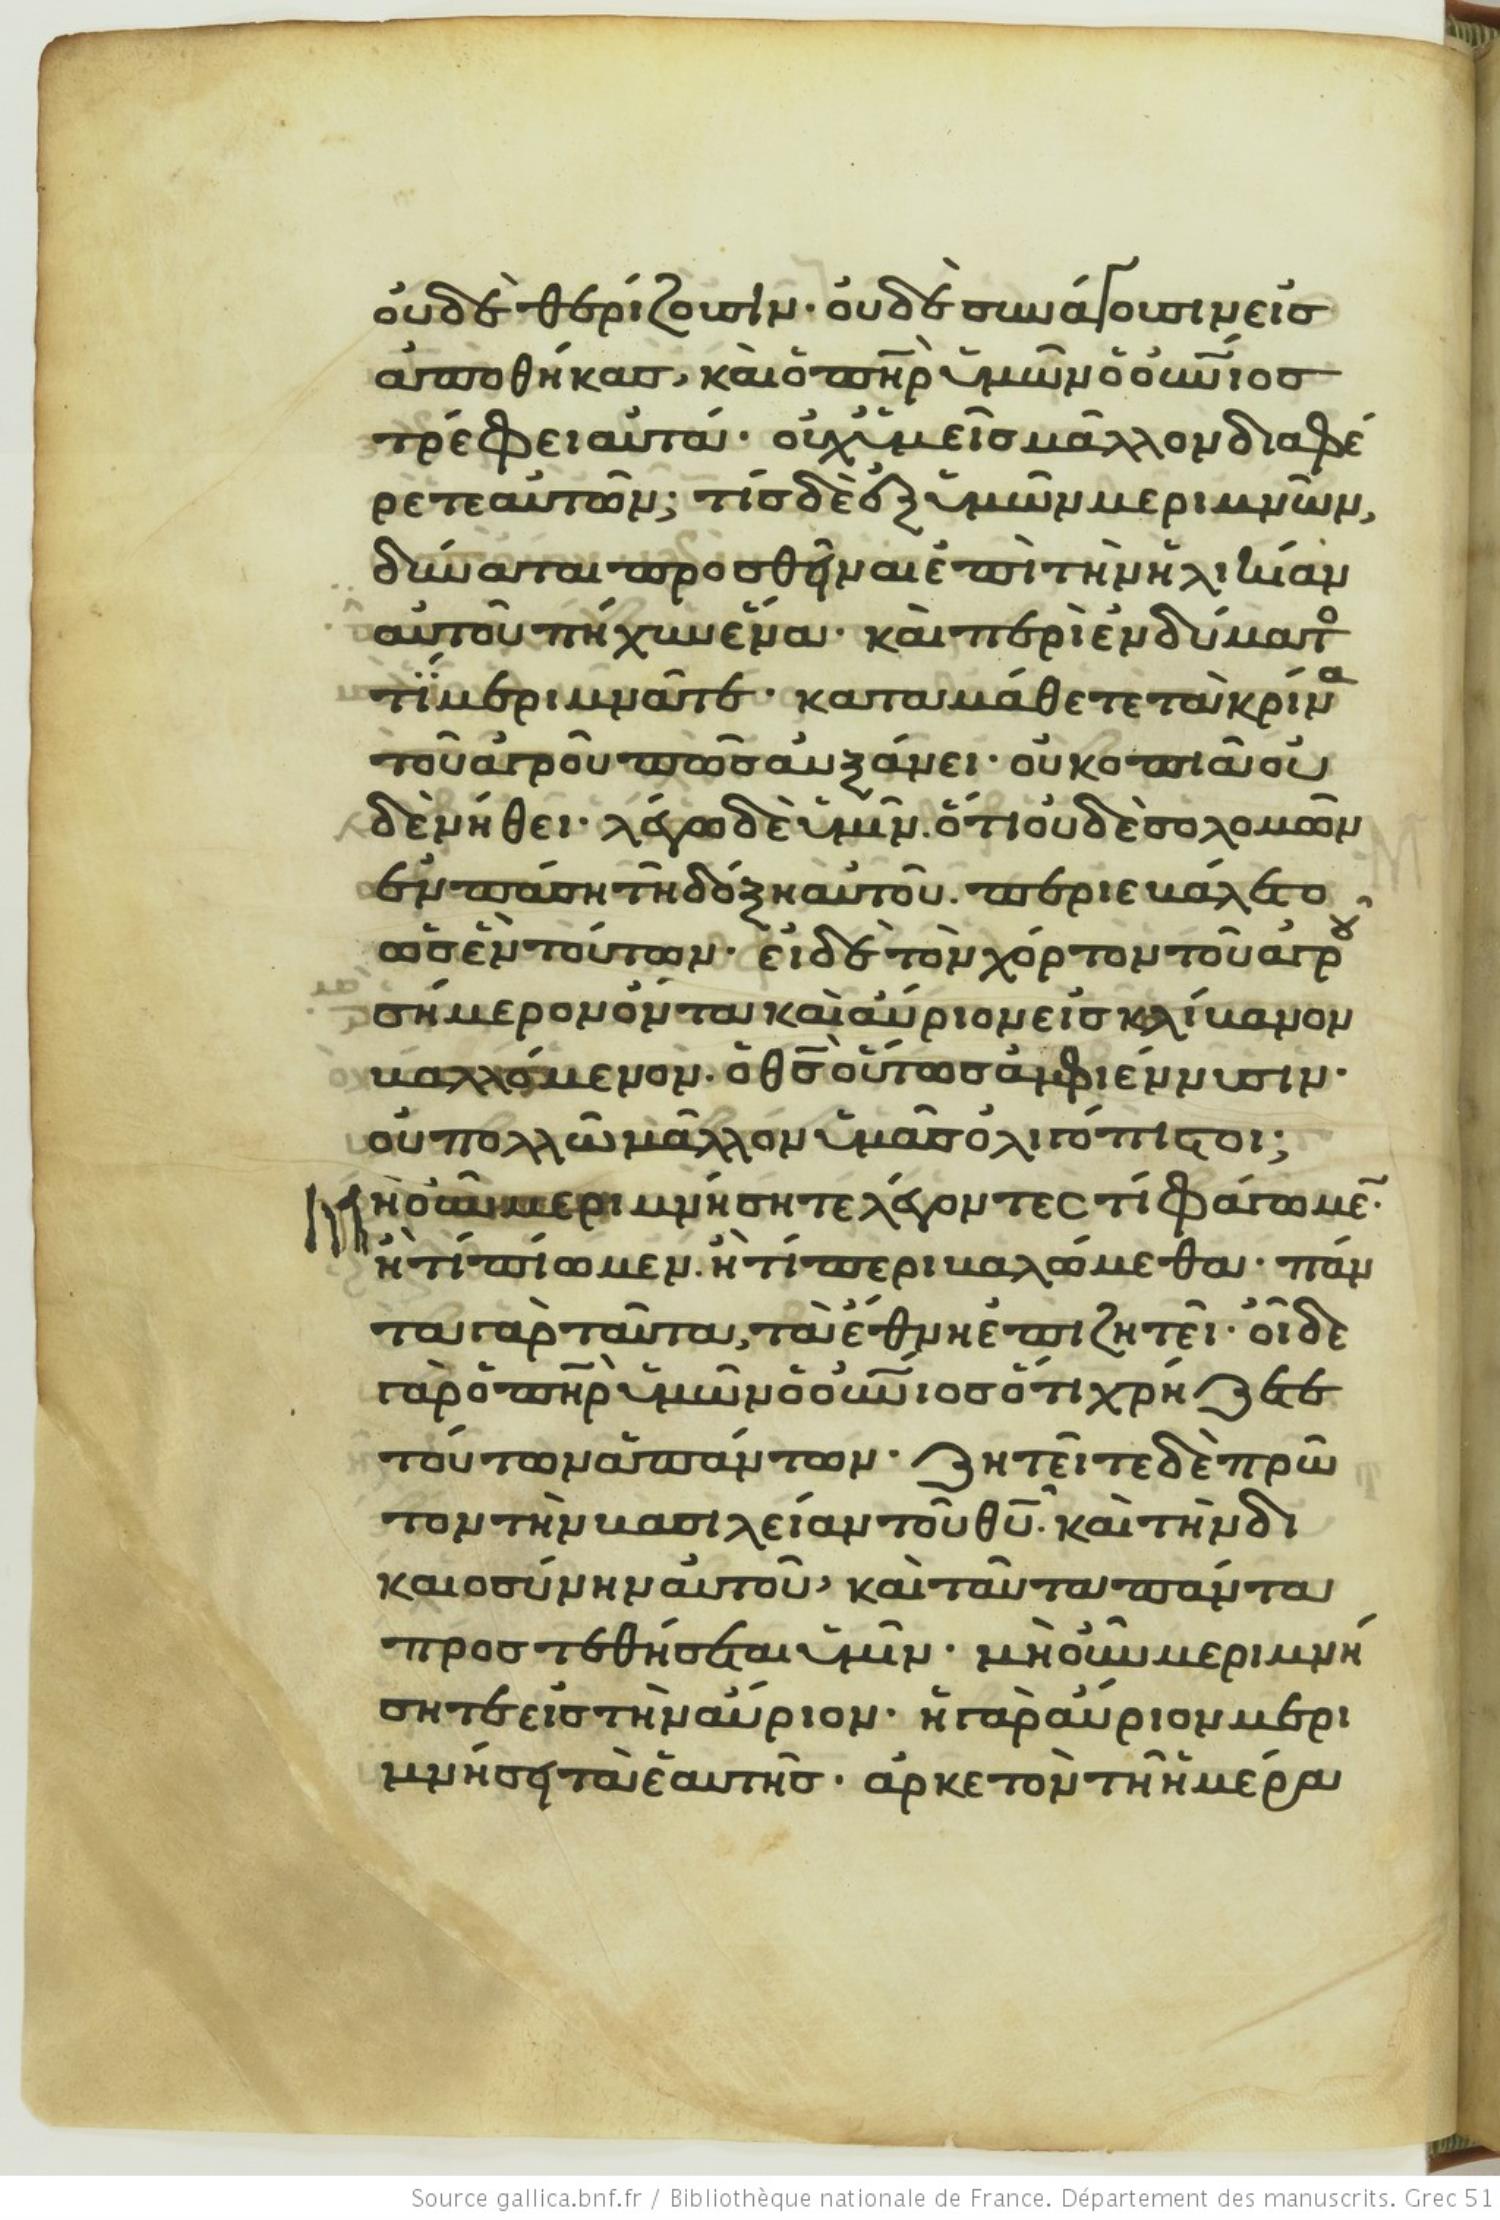 οὐδὲ θερίζουσὶν· οὐδὲ συνάγουσιν εἰσ
ἀποθήκασ, καὶ ὁ πη̅ρ ὑμῶν ὁ οὐν̅ιοσ
τρέφει αὐτά· οὐχ ὑμεῖσ μᾶλλον διαφέ
ρετε αὐτῶν; τίσ δὲ ἐξ ὑμῶν μεριμνῶν,
δύναται προσθῆναι ἐπὶ τὴν ἡλικίαν
αὐτοῦ πῆχυν ἕνα· καὶ περὶ ἐνδύματο
τί μεριμνᾶτε· καταμάθετε τὰ κρίνα
τοῦ ἀγροῦ πῶσ αὐξάνει· οὐ κοπιᾶ οὐ
δὲ νήθει· λέγω δὲ ὑμῖν. ὅτι οὐδὲ σολομῶν
ἐν πάση τῆ δόξη αὐτοῦ. περιεβάλετο
ὡσ ἓν τούτων· εἰ δὲ τὸν χόρτον τοῦ ἀγροῦ
σήμερον ὄντα καὶ αὔριον εἰσ κλίβανον
βαλλόμενον. ὁ θσ̅ οὕτωσ ἀμφιέννυσιν·
οὐ πολλῶ μᾶλλον ὑμᾶσ ὀλιγόπιστοι;
Μὴ οὖν μεριμνήσητε λέγοντεσ τί φάγωμε̅·
ἢ τί πίωμεν. ἢ τί περιβαλώμεθα· πάν
τα γὰρ ταῦτα, τὰ ἔθνη ἐπιζητεῖ· οἶδε
γὰρ ὁ πη̅ρ ὑμῶν ὁ οὐν̅ιοσ ὅτι χρήζετε
τούτων ἁπάντων· ζητεῖτε δὲ πρῶ
τον τὴν βασιλείαν τοῦ θυ̅· καὶ τὴν δι
καιοσύνην αὐτοῦ, καὶ ταῦτα πάντα
προστεθήσεται ὑμῖν· μὴ οὖν μεριμνή
σητε εἰσ τὴν αὔριον· ἡ γὰρ αὔριον μερι
μνήσει τὰ ἑαυτῆσ· ἀρκετὸν τῆ ἡμέρα
Source gallica.bnf.fr / Bibliothèque nationale de France. Département des manuscrits. Grec 51